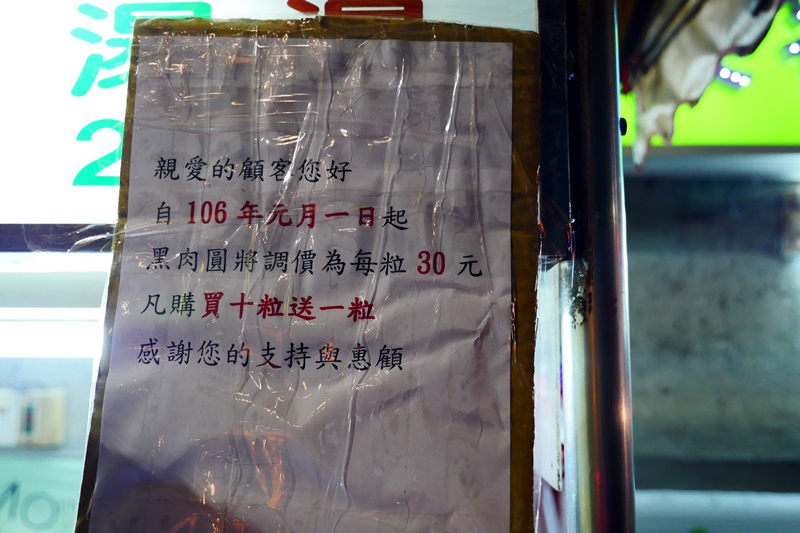 親愛的顧客您好
自 106 年元月一日起
黑肉圓將調價為每粒 30 元
凡購買十粒送一粒
感謝您的支持與惠顧
2
Mo